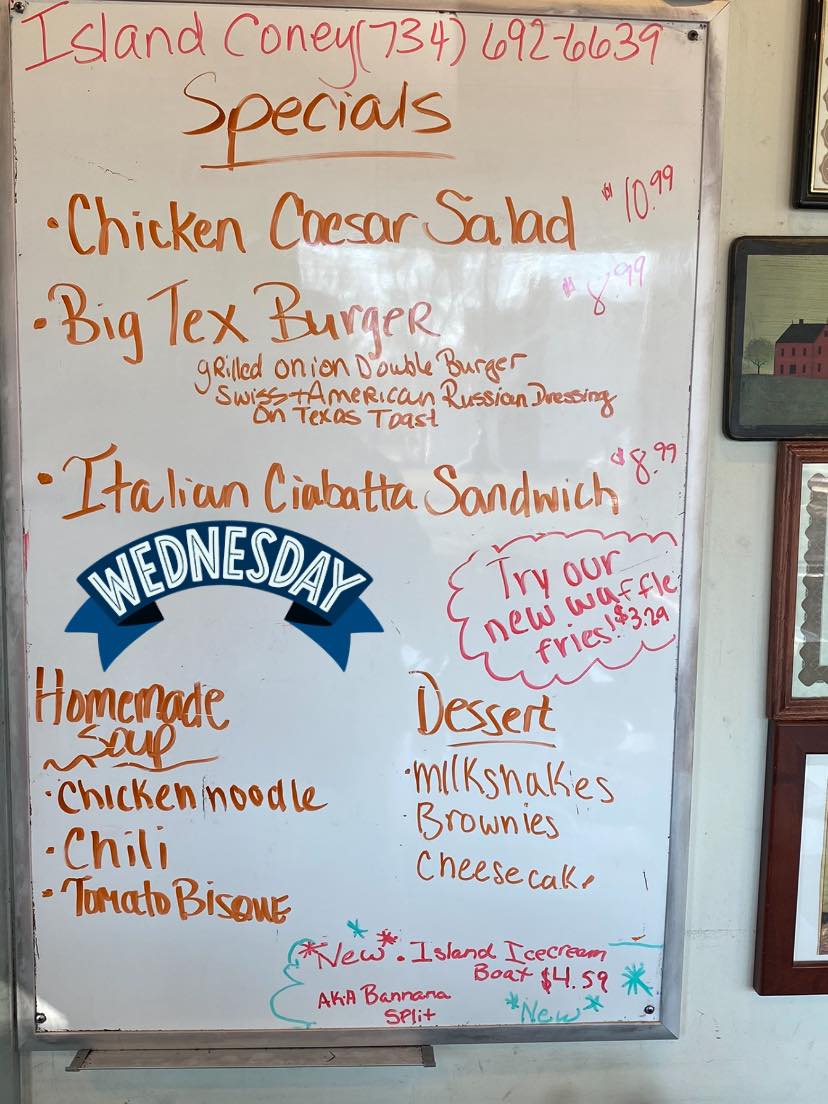 Island Coney (734) 692-6639
Specials
• Chicken Caesar Salad $10.99
• Big Tex Burger $8.99
grilled onion Double Burger
Swiss + American Russian Dressing
On Texas Toast
• Italian Ciabatta Sandwich $8.99
WEDNESDAY
Try our
new waffle
fries! $3.29
Homemade
Soup
• Chicken noodle
• Chili
• Tomato Bisque
Dessert
• Milkshakes
Brownies
Cheesecake
*New* • Island Icecream
Boat $4.59
AKA Bannana
Split
*New*